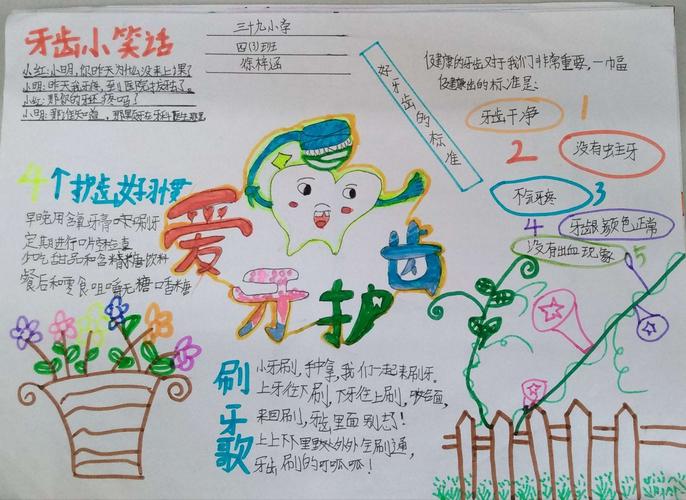 牙齿小笑话
小红:小明,你昨天为什么没来上课?
小明:昨天我牙疼,到医院拔牙了。
小红:那你的牙还疼吗?
小明:那谁知道,那颗牙在牙科医生那里
三十九小学
四(3)班
徐梓涵
好牙齿的标准
健康的牙齿对于我们非常重要,一口
健康的标准是:
牙齿干净 1
2 没有虫主牙
不气牙疼 3
4 牙龈颜色正常
没有出血现象 5
4个护齿好习惯
早晚用含氟牙膏刷牙
定期进行口腔检查
少吃甜品和含糖饮料
餐后和零食咀嚼无糖口香糖
爱牙护齿
刷牙歌
小牙刷,手中拿,我们一起来刷牙。
上牙往下刷,下牙往上刷,咬合面,
来回刷,牙齿里面别忘!
上上下下里里外外全刷遍,
牙齿刷的呱呱!